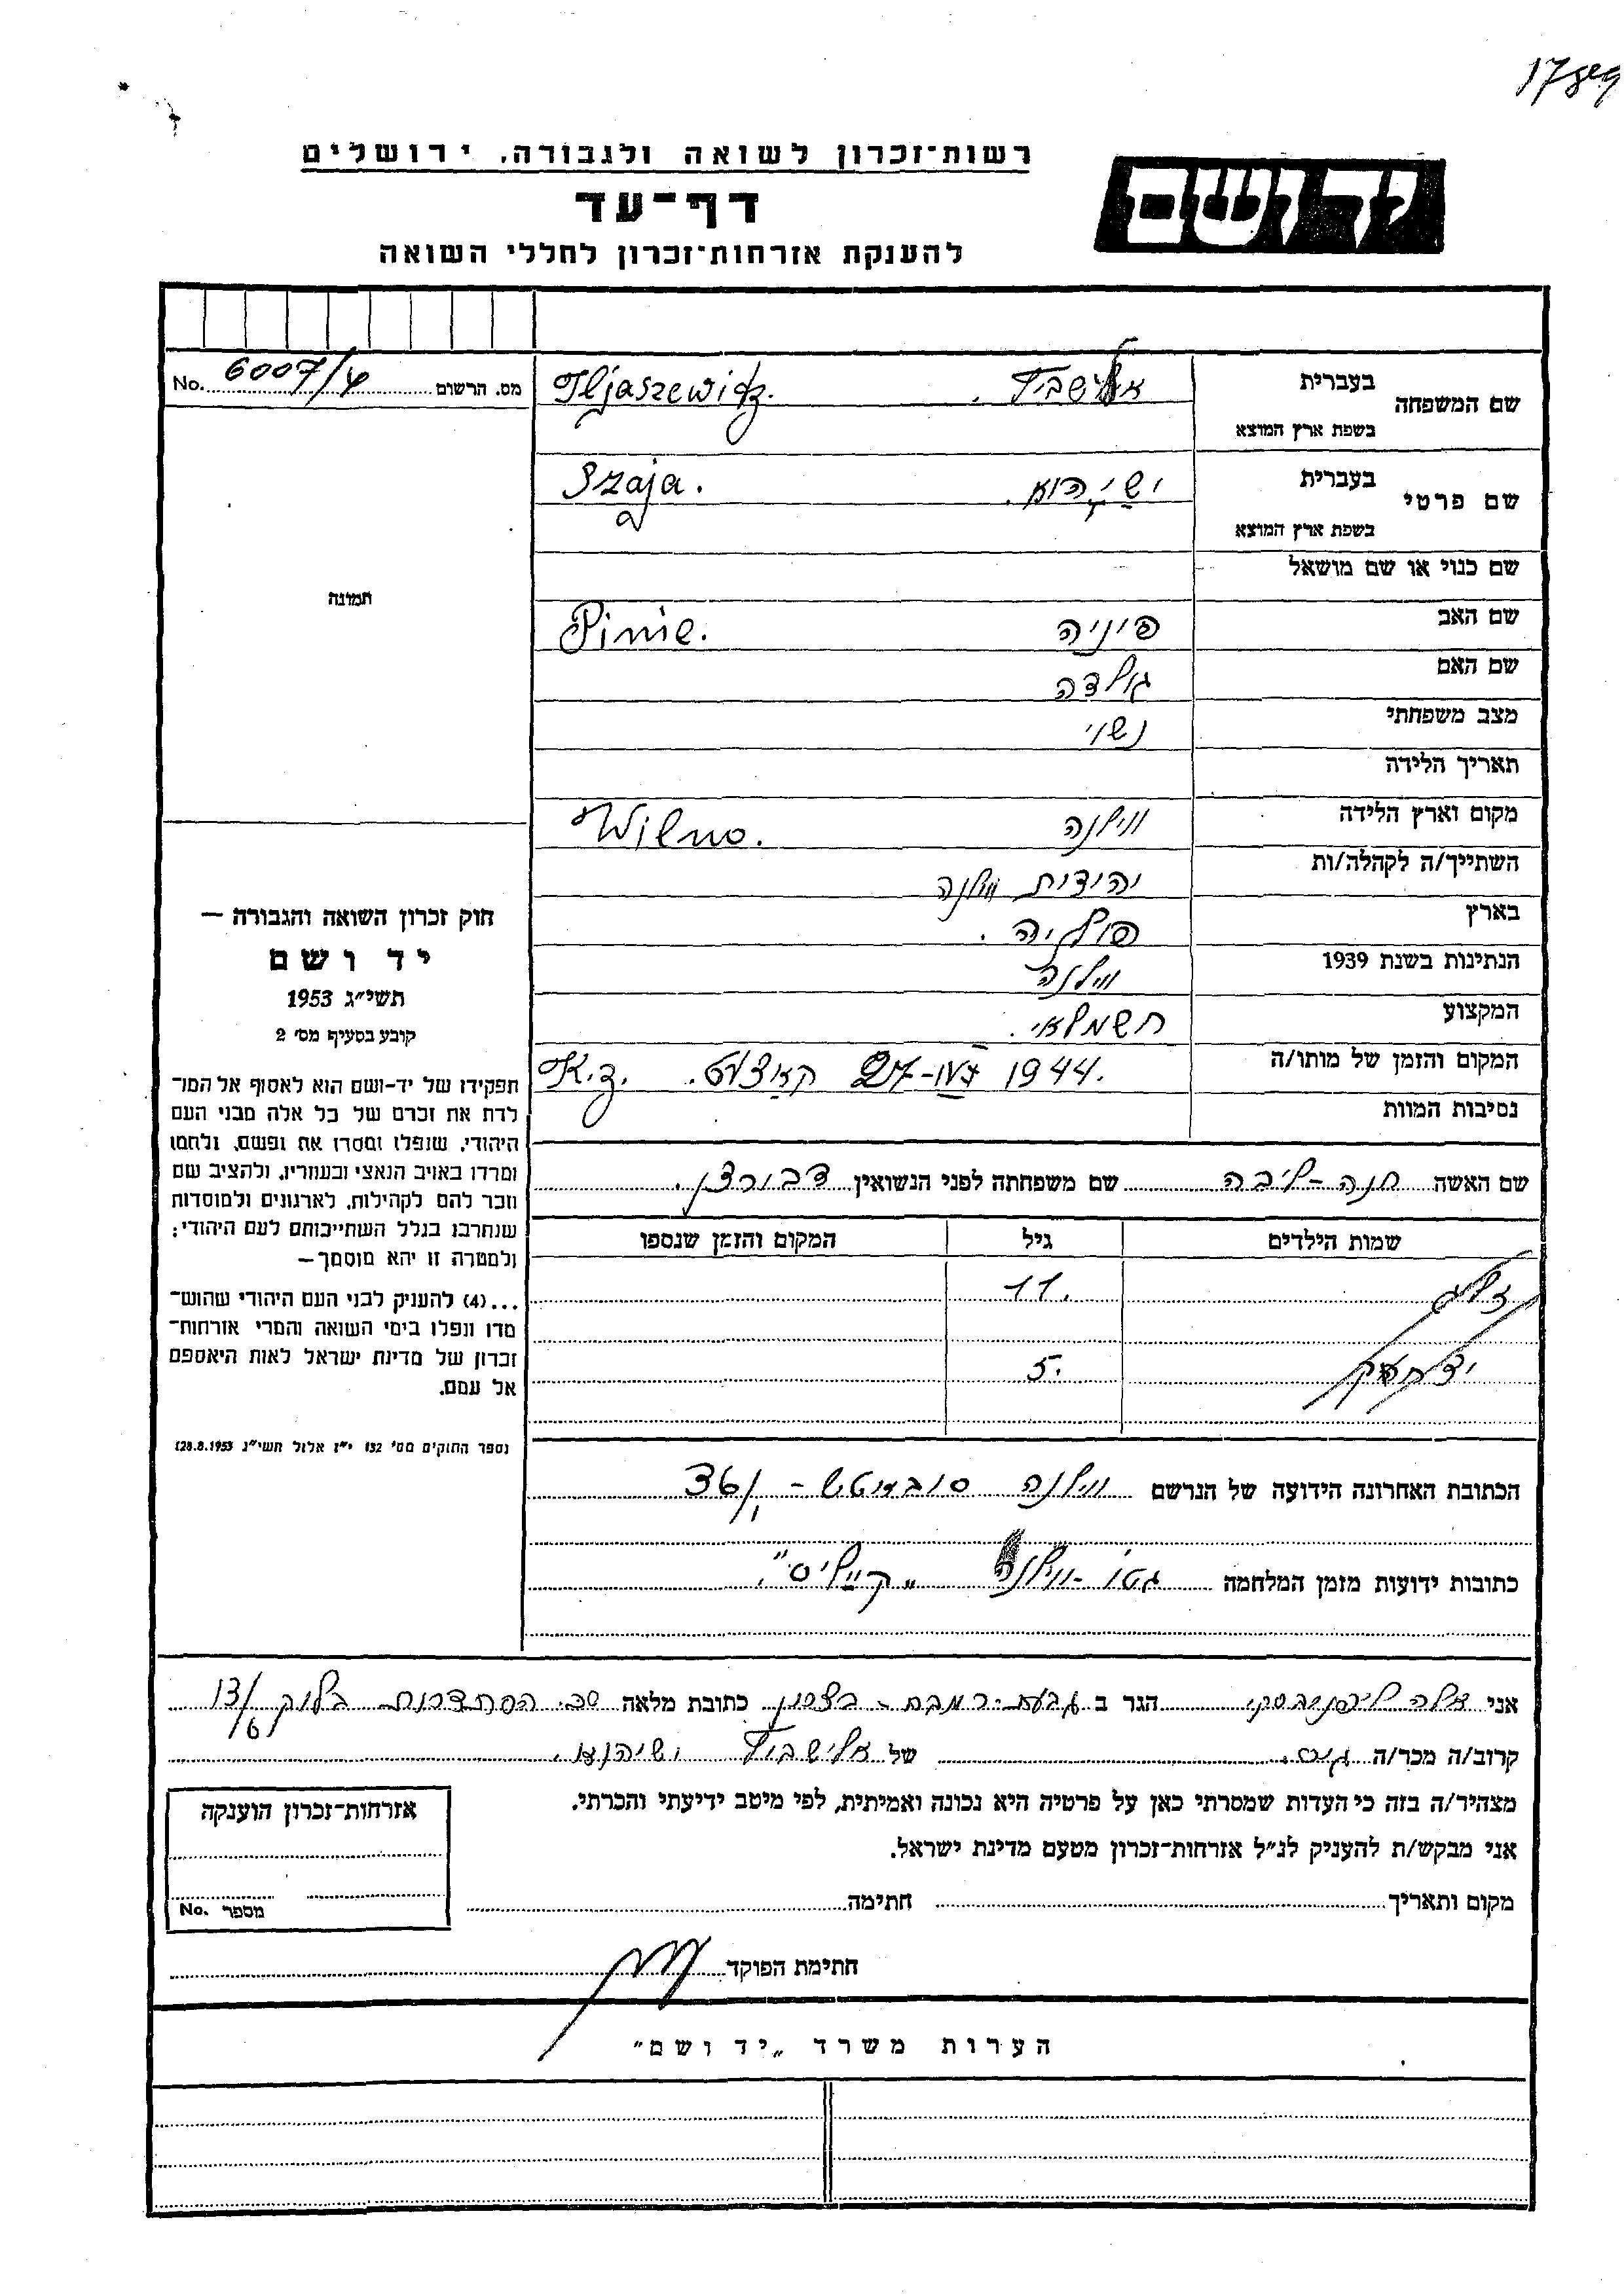 רשות־זכרון לשואה ולגבורה, ירושלים
יד ושם
דף־עד
להענקת אזרחות־זכרון לחללי השואה
No. 6007/4 מס. הרשום
שם המשפחה בעברית Iljaszewicz.
בשפת ארץ המוצא
שם פרטי בעברית Szaja.
בשפת ארץ המוצא
שם כנוי או שם מושאל
שם האב פיניה Pinie.
שם האם גולדה
מצב משפחתי נשוי
תאריך הלידה
מקום וארץ הלידה ווילנה Wilno.
השתייך/ה לקהלה/ות יהודית ווילנה
בארץ פולניה.
הנתינות בשנת 1939 ווילנה
המקצוע חשמלאי.
המקום והזמן של מותו/ה 1944. 27-
נסיבות המוות
שם האשה חנה-ליבה שם משפחתה לפני הנשואין
שמות הילדים גיל המקום והזמן שנספו
11.
5.
הכתובת האחרונה הידועה של הנרשם ווילנה 36/1
כתובות ידועות מזמן המלחמה גטו-ווילנה "קייליס".
תמונה
חוק זכרון השואה והגבורה —
יד ושם
תשי"ג 1953
קובע בסעיף מס' 2
תפקידו של יד-ושם הוא לאסוף אל המו־
לדת את זכרם של כל אלה מבני העם
היהודי, שנפלו ומסרו את נפשם, נלחמו
ומרדו באויב הנאצי ובעוזריו, ולהציב שם
וזכר להם לקהילות, לארגונים ולמוסדות
שנחרבו בגלל השתייכותם לעם היהודי;
ולמטרה זו יהא מוסמך —
...(4) להעניק לבני העם היהודי שהוש־
מדו ונפלו בימי השואה והמרי אזרחות־
זכרון של מדינת ישראל לאות היאספם
אל עמם.
(ספר החוקים מס' 132 י"ז אלול תשי"ג 28.8.1953)
אני הגר ב גבעת-רמב"ם כתובת מלאה שכ. הסתדרות בלוק 13/
קרוב/ה מכר/ה גיס. של
מצהיר/ה בזה כי העדות שמסרתי כאן על פרטיה היא נכונה ואמיתית, לפי מיטב ידיעתי והכרתי.
אני מבקש/ת להעניק לנ"ל אזרחות־זכרון מטעם מדינת ישראל.
מקום ותאריך חתימה
חתימת הפוקד
אזרחות־זכרון הוענקה
No. מספר
הערות משרד "יד ושם"